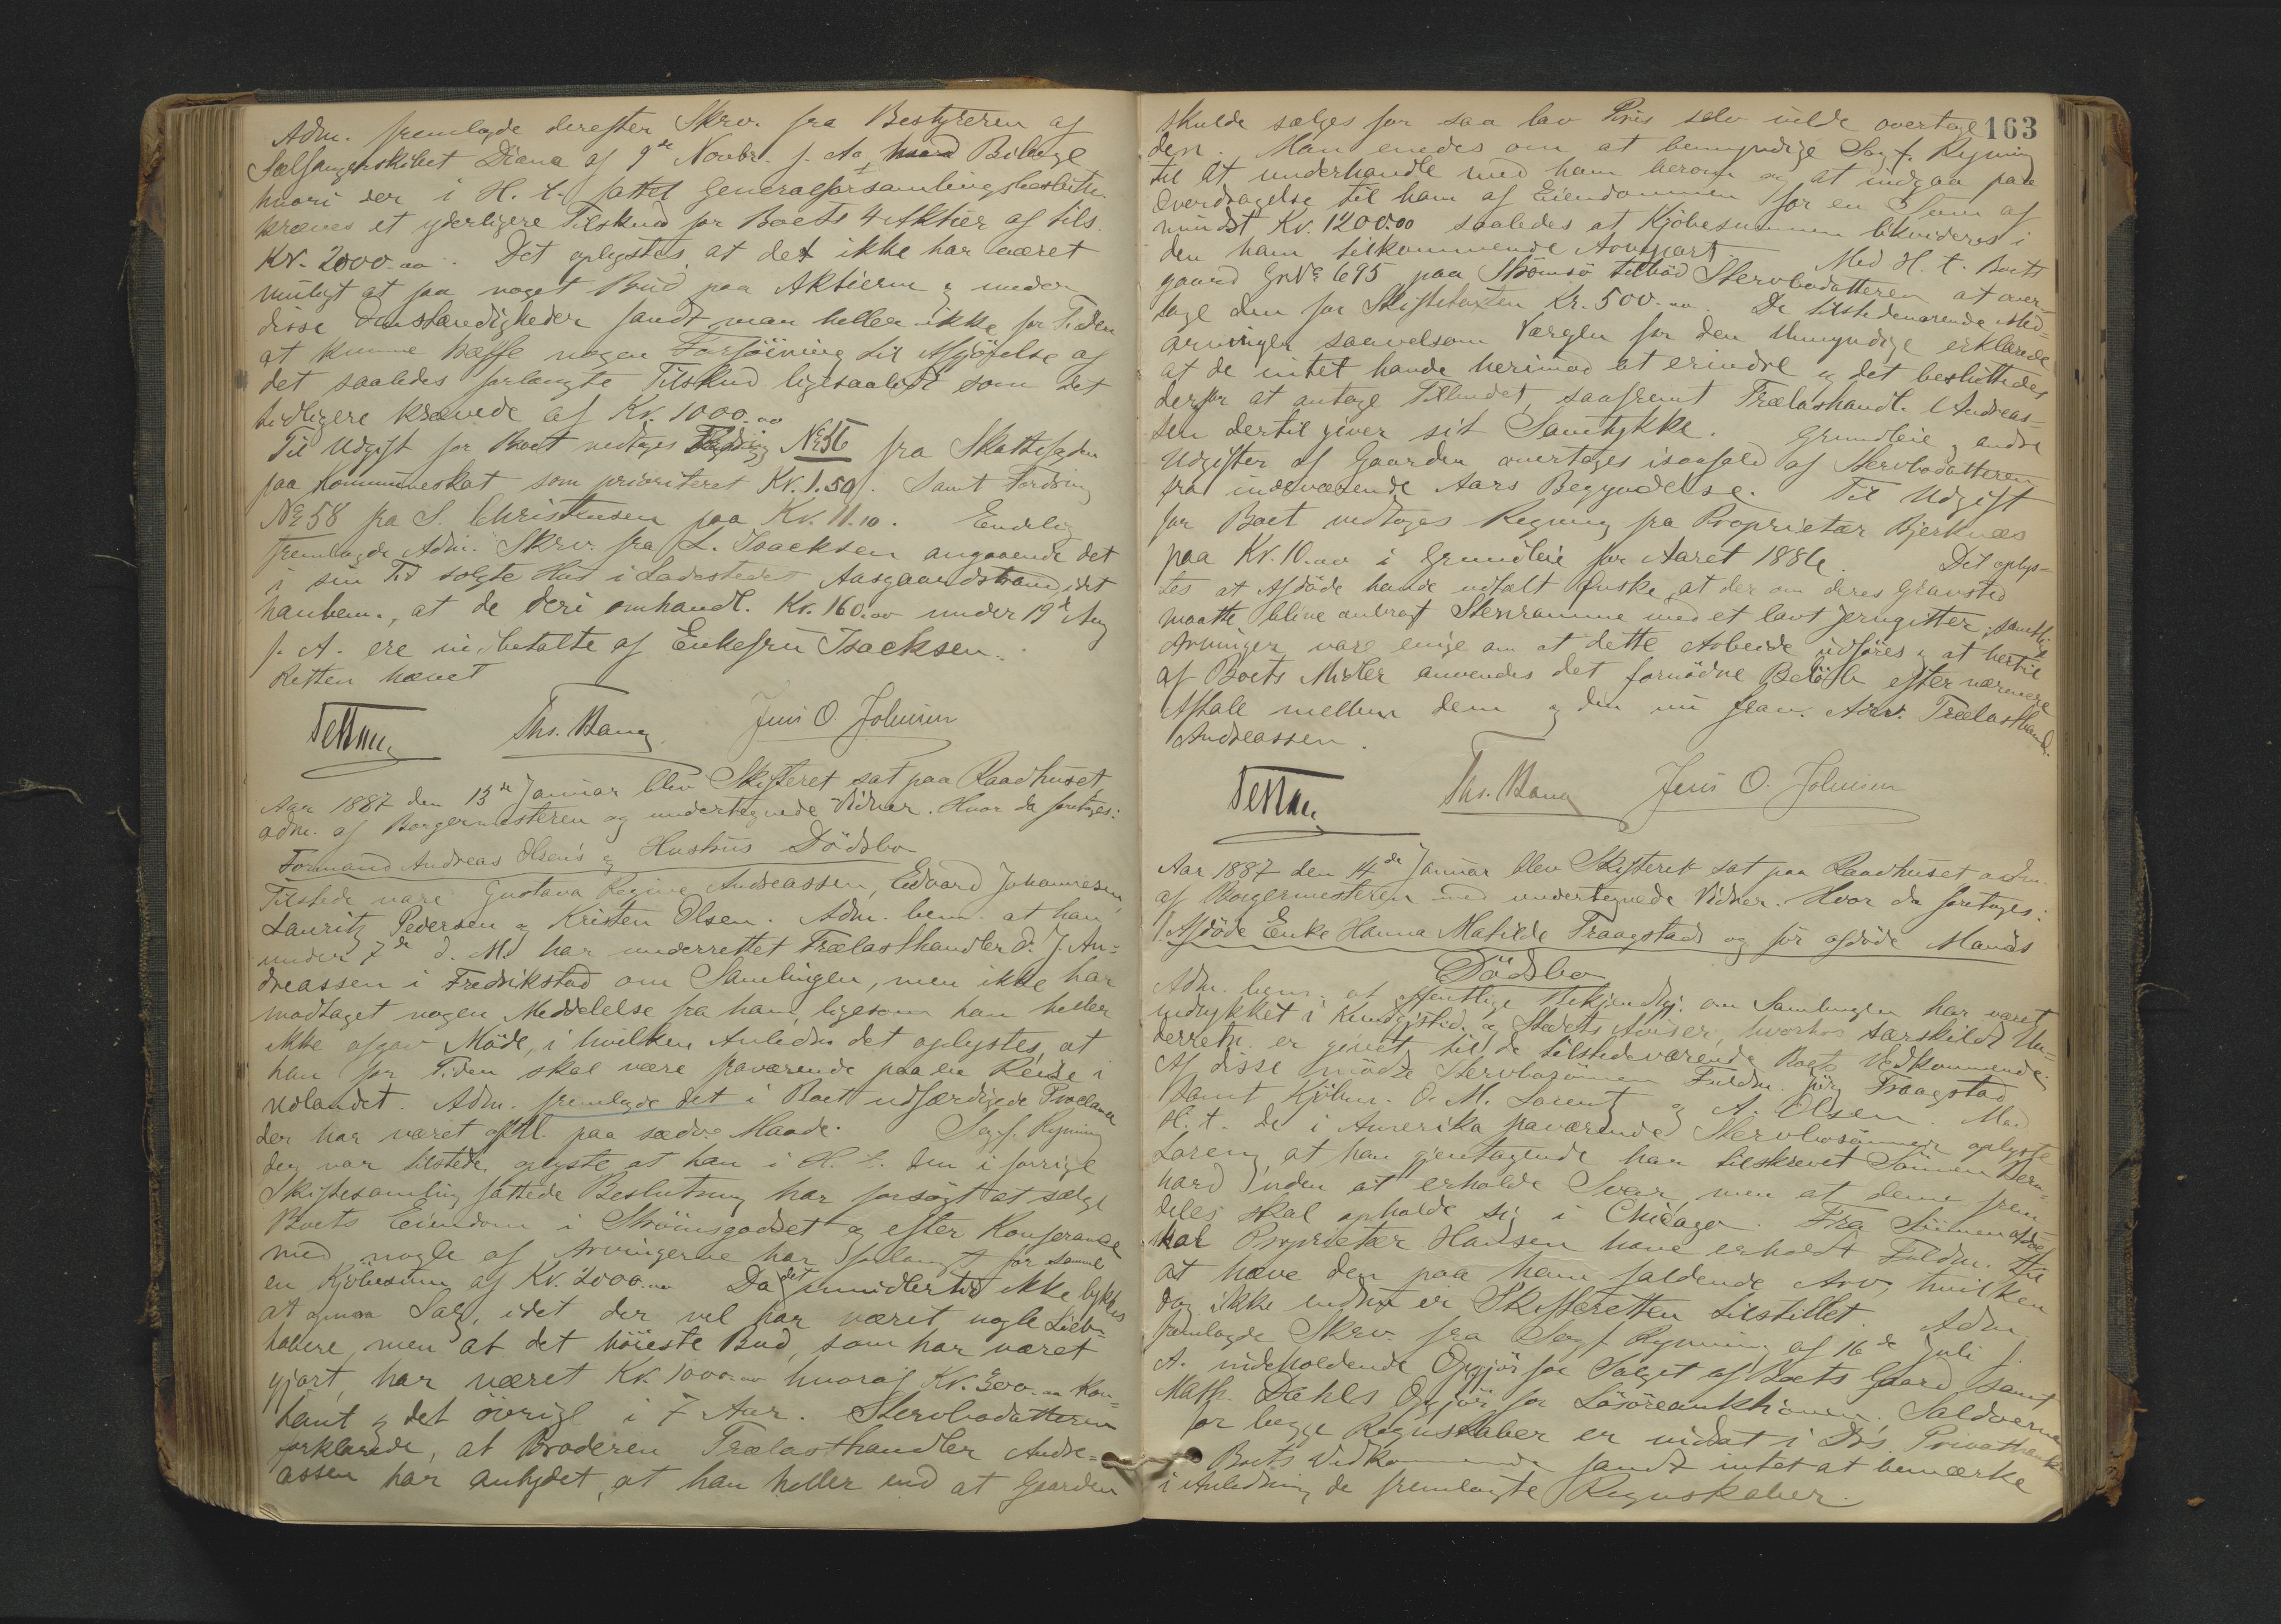 Adm. fremlagde derefter Skrv. fra Bestyreren af
Sælfangerskibet Diana af 9de Novbr. f. A. Bilage
hvori der i H. t. fattet Generalforsamlingsbeslutn.
kræves et yderligere Tilskud for Boets 4 Aktier af tils.
Kr. 2000.00. Det oplystes, at det ikke har været
muligt at faa noget Bud paa Aktierne & under
disse Omstændigheder fandt man heller ikke for Tiden
at kunne træffe nogen Forføining til Afgjørelse af
det saaledes forlangte Tilskud ligesaalidt som det
tidligere krævede af Kr. 1000.00
Til Udgift for Boet vedtoges Fordring No 56 fra Skattefogden
paa Kommuneskat som prioriteret Kr. 1.50. Samt Fordring
No 58 fra S. Christensen paa Kr. 11.10. Endelig
fremlagde Adm. Skrv. fra L. Isacksen angaaende det
i sin Tid solgte Hus i Ladestedet Aasgaardstrand, idet
han bem., at de deri omhandl. Kr. 160.00 under 19de Aug
f. A. ere indbetalte af Enkefru Isacksen.
Retten hævet
Ths. Bang Jens O. Johnsen
Aar 1887 den 13de Januar blev Skifteret sat paa Raadhuset,
adm. af Borgermesteren og undertegnede Vidner. Hvor da foretoges:
Formand Andreas Olsen's & Hustrus Dödsbo
Tilstede vare: Gustava Regine Andreassen, Edvard Johannesen,
Lauritz Pedersen & Kristen Olsen. Adm. bem. at han
under 7de d. M. har underrettet Trælasthandler O. J. An-
dreassen i Fredrikstad om Samlingen, men ikke har
modtaget nogen Meddelelse fra ham, ligesom han heller
ikke afgav Møde, i hvilken Anledn. det oplystes, at
han for Tiden skal være fraværende paa en Reise i
Udlandet. Adm. fremlagde det i Boet udfærdigede Proclama
der har været paa sædv. Maade. Sagf. Rynning
der var tilstede, oplyste at han i H. t. den i forrige
Skiftesamling fattede Beslutning har forsøgt at sælge
Boets Eiendom i Strömsgodset & efter Konferance
med nogle af Arvingerne har forlangt for samme
en Kjöbesum af Kr. 2000.00 Da det imidlertid ikke lykkes
at opnaa Salg, idet der vel har været nogle Lieb-
habere, men at det høieste Bud, som har været
gjort, har været Kr. 1000.00 hvoraf Kr. 300.00 Kon-
tant & det övrige i 7 Aar. Stervbodatteren
forklarede, at Broderen Trælasthandler Andre-
assen har antydet, at han heller end at Gaarden
163
skulde sælges for saa lav Pris selv vilde overtage
den. Man enedes om at bemyndige Sagf. Rynning
til at underhandle med ham herom og at indgaa paa
Overdragelse til ham af Eiendommen for en Sum af
mindst Kr. 1200.00 saaledes at Kjöbesummen likvideres i
den ham tilkommende Arvepart. Med H. t. Boets
gaard GrNo 695 paa Strömsö tilböd Stervbodatteren at over-
tage den for Skiftetaxten Kr. 500.00. De tilstedeværende Med-
arvinger saavelsom Værgen for den Umyndige erklærede
at de intet havde herimod at erindre & det besluttedes
derfor at antage Tilbudet, saafremt Trælasthandl. Andreas-
sen dertil giver sit Samtykke. Grundleie & andre
Udgifter af Gaarden overtages isaafald af Stervbodatteren
fra indeværende Aars Begyndelse. Til Udgift
for Boet vedtoges Regning fra Proprietær Bjerknæs
paa Kr. 10.00 i Grundleie for Aaret 1886. Det oplys-
tes at Afdøde havde udtalt Ønske, at der om deres Gravsted
maatte blive anbragt Stenramme med et lavt Jerngitter; samtlige
Arvinger vare enige om at dette Arbeide udføres & at hertil
af Boets Midler anvendes det fornødne Beløb efter nærmere
Aftale mellem dem & den nu frav. Arv. Trælasthandl.
Andreassen.
Ths. Bang Jens O. Johnsen
Aar 1887 den 14de Januar blev Skifteret sat paa Raadhuset adm.
af Borgermesteren med undertegnede Vidner. Hvor da foretoges:
1. Afdöde Enke Hanna Matilde Fraagstads og för afdöde Mands
Dödsbo
Adm. bem. at offentlige Bekjendtgj. om Samlingen har været
indrykket i Kundgj.tid. & Stedets Aviser, hvorhos særskildt Un-
derretn. er givet til de tilstedeværende Boets Vedkommende.
Af disse mødte Stervbosönnen Fuldm. Jörg. Fraagstad
samt Kjöbm. O. M. Lorentz & A. Olsen. Med
H. t. de i Amerika fraværende Stervbosönner oplyste
Lorenz at han gjentagende har tilskrevet Sönnen Bern-
hard uden at erholde Svar, men at denne frem-
deles skal opholde sig i Chicago. Fra Sönnen
skal Proprietær Hansen have erholdt Fuldm. til
at hæve den paa ham faldende Arv, hvilken
dog ikke endnu er Skifteretten tilstillet. Adm.
fremlagde Skrv. fra Sagf. Rynning af 16de Juli f.
A. indeholdende Opgjör for Salget af Boets Gaard samt
Math. Dahls Opgjör for Lösöreauktionen. Saldoerne
for begge Regnskaber er indsat i Drs. Privatbank
Boets Vedkommende fandt intet at bemærke
i Anledning de fremlagte Regnskaber.